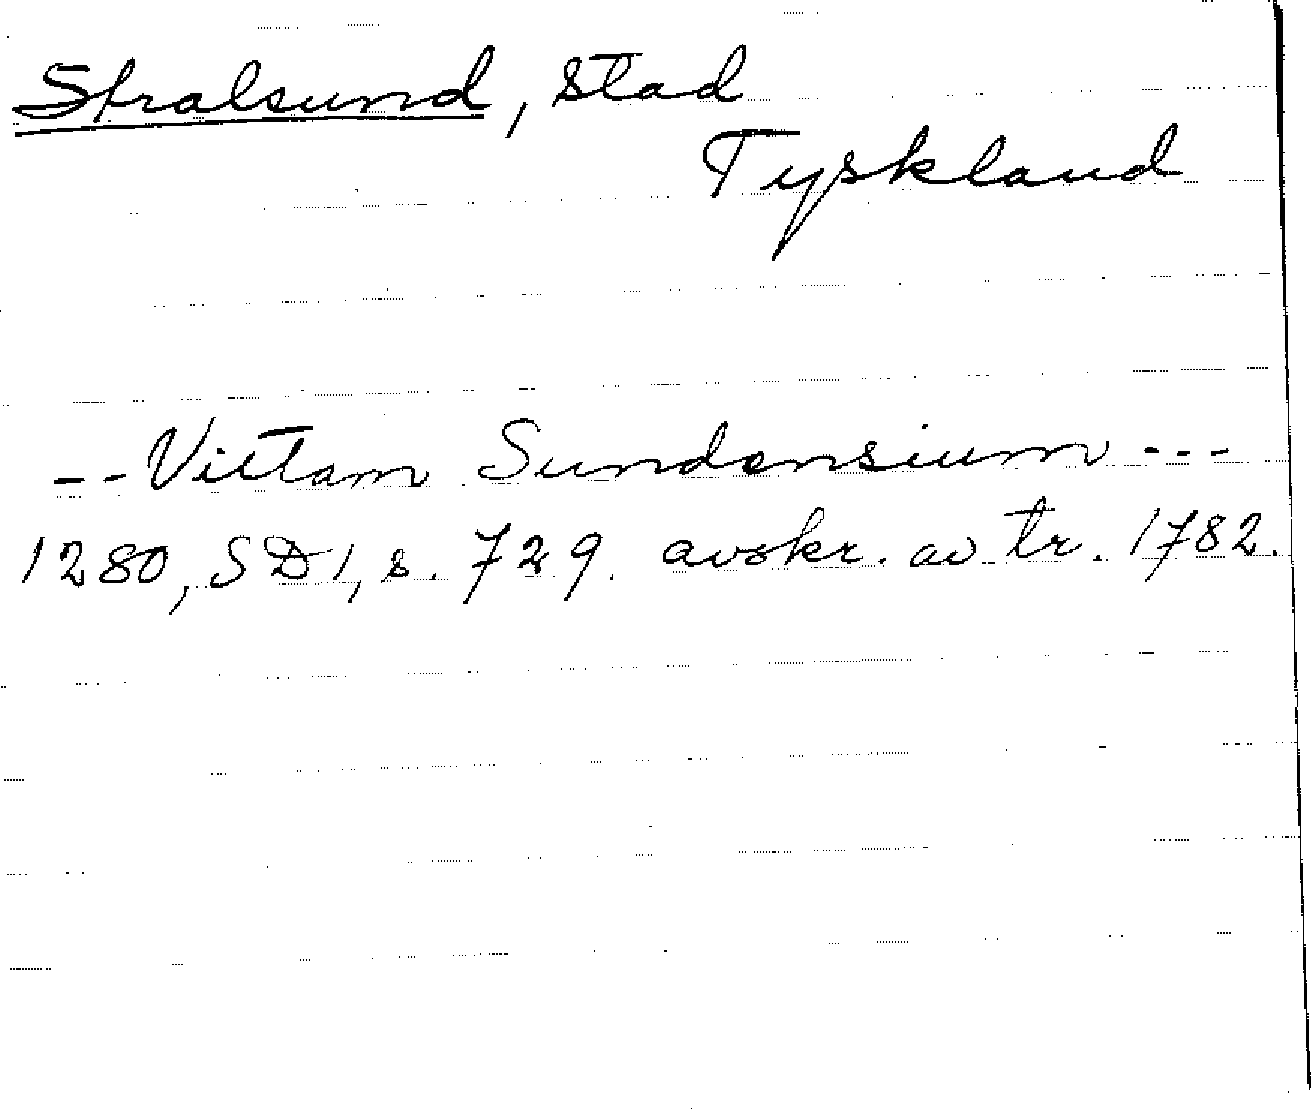 Stralsund, stad
Tyskland
-- Vittam Sundensium ---
1280, SD 1, s. 729. avskr. av tr. 1782.